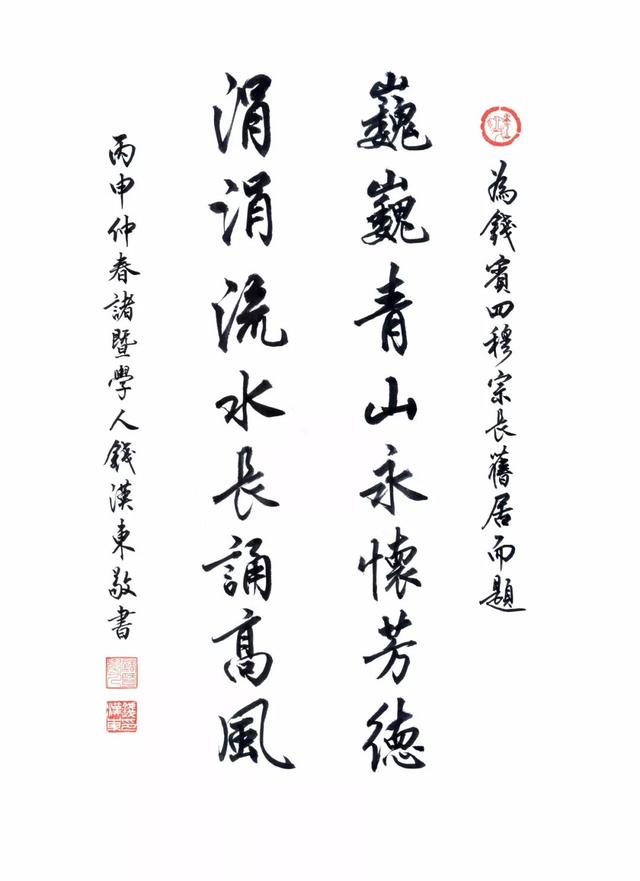 為錢賓四穆宗長舊居而題
巍巍青山永懷芳德
涓涓流水長誦高風
丙申仲春諸暨學人錢漢東敬書
錢漢東